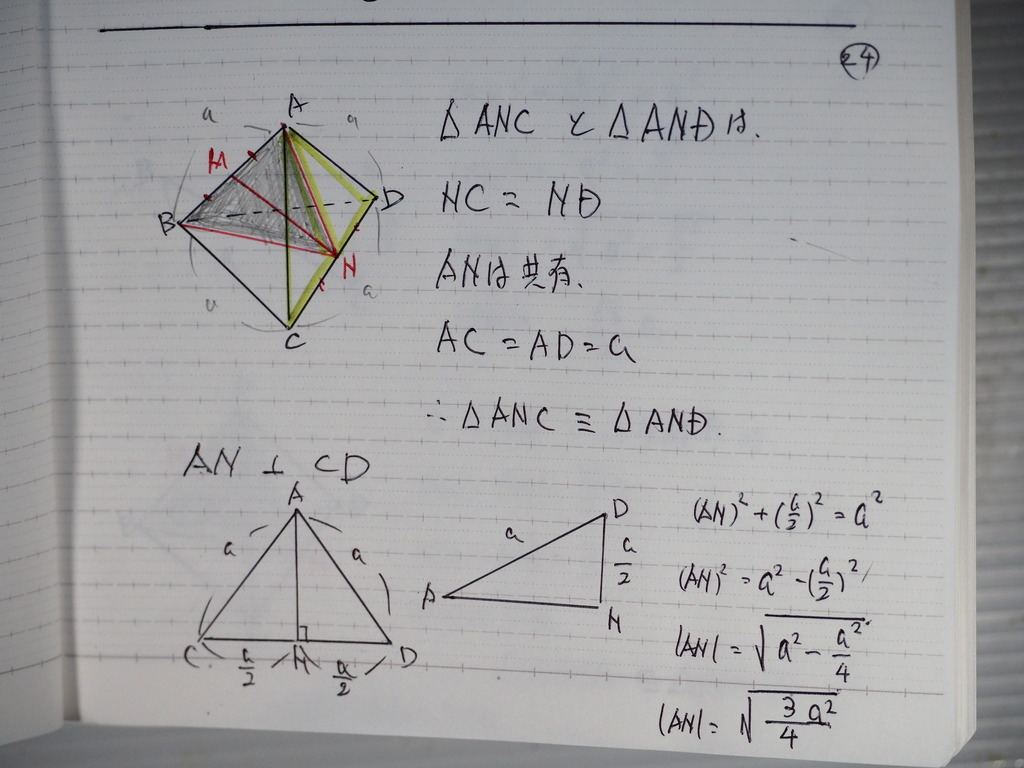 24
A
a
a
M
B
D
N
a
a
C
△ANC と △ANDは.
NC = ND
ANは共有.
AC = AD = a
∴ △ANC ≡ △AND.
AN ⊥ CD
A
a
a
C
a/2
N
a/2
D
D
a
a/2
A
N
(AN)² + (a/2)² = a²
(AN)² = a² - (a/2)²
|AN| = √(a² - a²/4)
|AN| = √(3/4 a²)